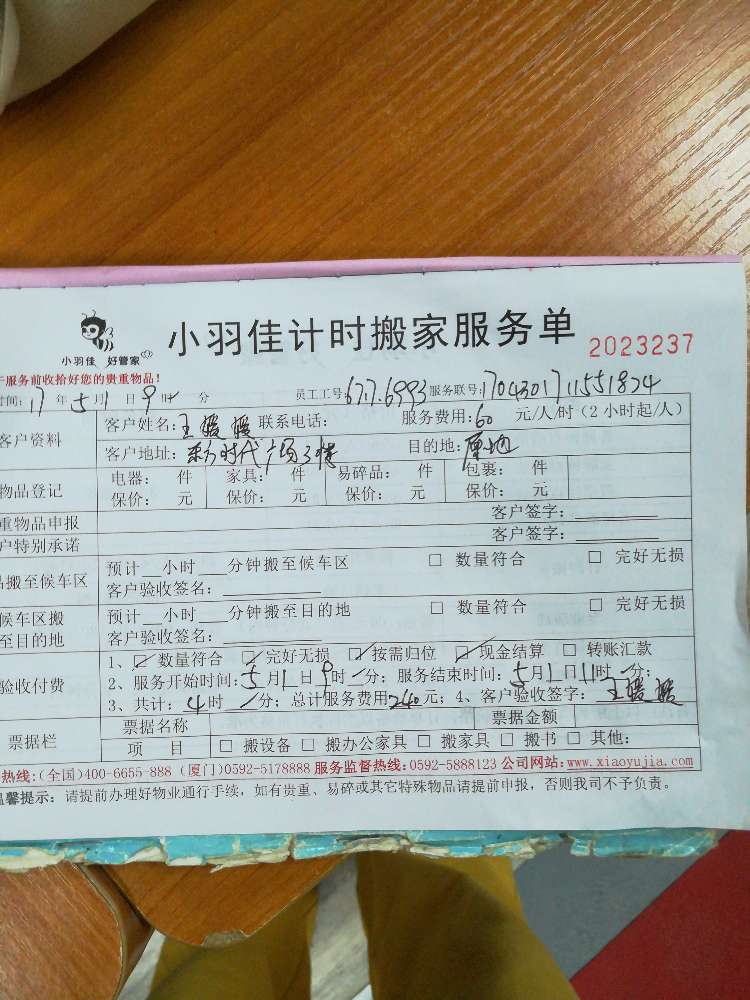 小羽佳计时搬家服务单
小羽佳 好管家
2023237
服务前收拾好您的贵重物品！
时间：17 年 5月1日 9时 分 员工工号 6717.6993 服务联号：1704301711551824
客户资料
客户姓名：王媛媛 联系电话： 服务费用：60 元/人/时（2小时起/人）
客户地址：时代广场3楼 目的地：原地
物品登记
电器： 件 家具： 件 易碎品： 件 包裹： 件
保价： 元 保价： 元 保价： 元 保价： 元
重物品申报 客户签字：
户特别承诺 客户签字：
品搬至候车区
预计 小时 分钟搬至候车区 □ 数量符合 □ 完好无损
客户验收签名：
候车区搬至目的地
预计 小时 分钟搬至目的地 □ 数量符合 □ 完好无损
客户验收签名：
验收付费
1、☑ 数量符合 ☑ 完好无损 ☑ 按需归位 ☑ 现金结算 □ 转账汇款
2、服务开始时间：5月1日9时/分；服务结束时间：5月1日11时/分；
3、共计：4时 /分；总计服务费用240元；4、客户验收签字：王媛媛
票据栏
票据名称 票据金额
项 目 □ 搬设备 □ 搬办公家具 □ 搬家具 □ 搬书 □ 其他：
热线：(全国)400-6655 888 (厦门)0592-5178888 服务监督热线：0592-5888123 公司网站：www.xiaoyujia.com
温馨提示：请提前办理好物业通行手续，如有贵重、易碎或其它特殊物品请提前申报，否则我司不予负责。